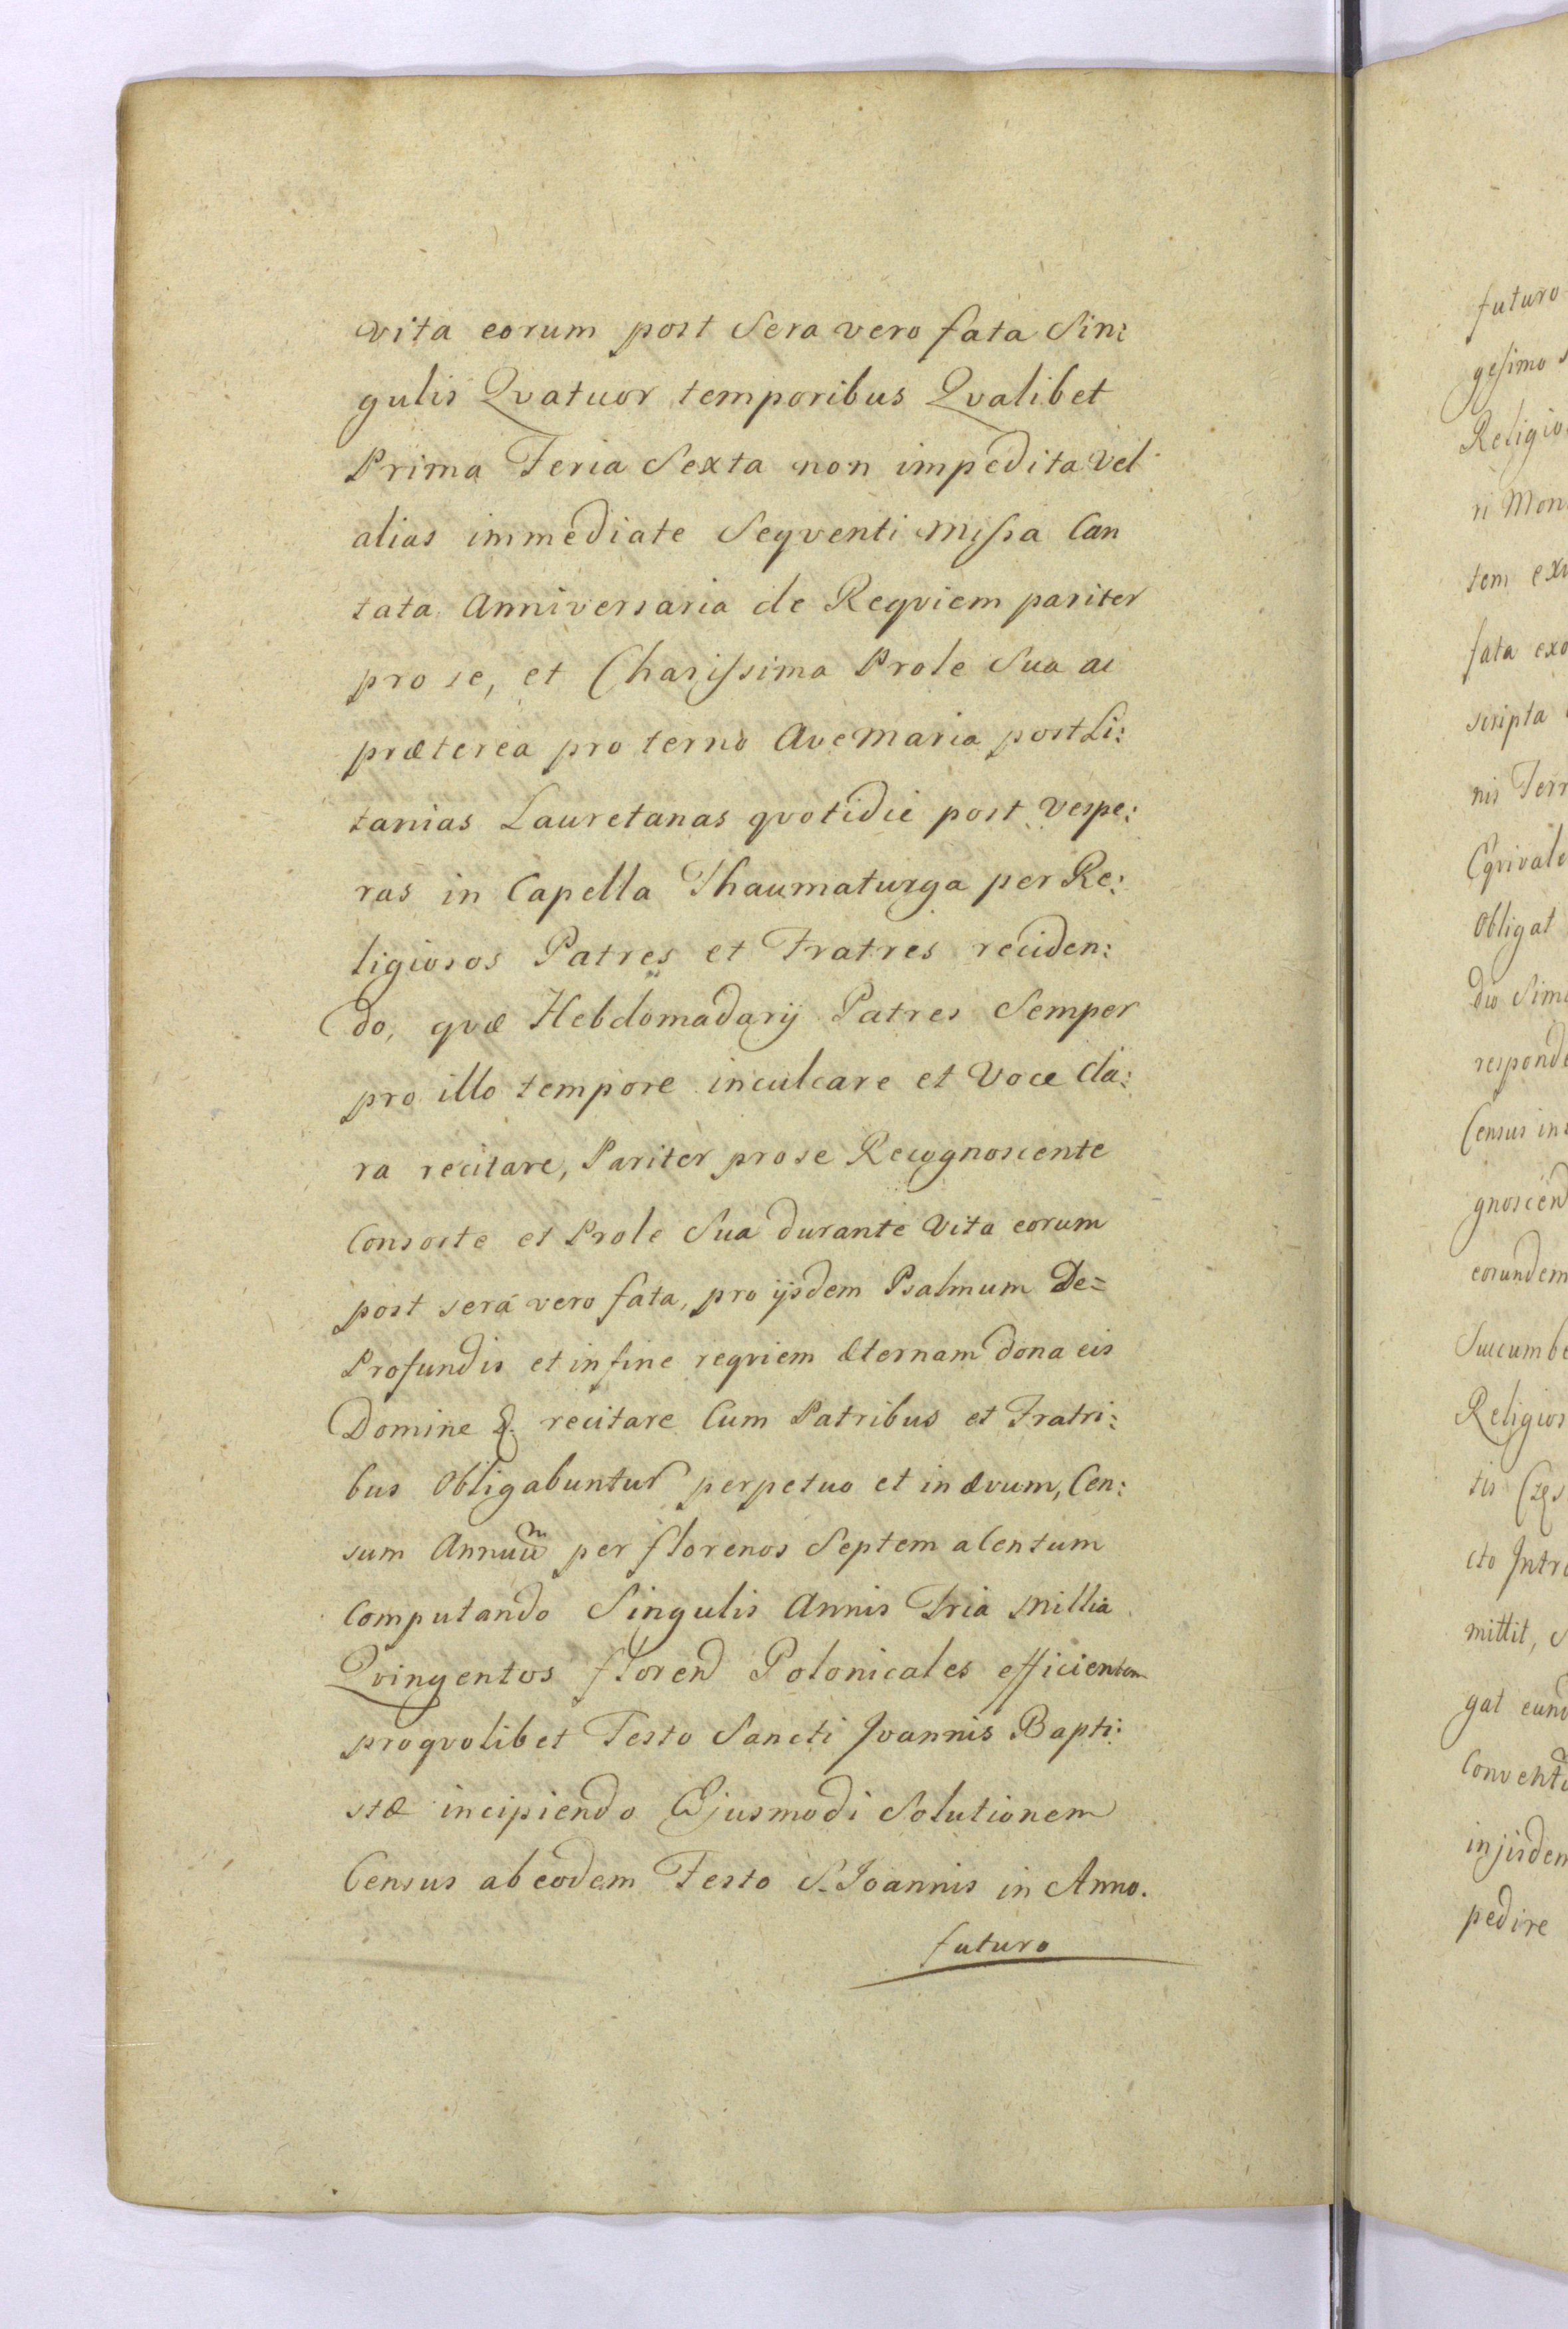 vita eorum post Sera vero fata Sin:
gulis Qvatuor temporibus Qvalibet
Prima Feria Sexta non impedita Vel
alias immediate Seqventi Missa Can
tata Anniversaria de Reqviem pariter
pro se, et Charissima Prole Sua ac
præterea pro terno Ave Maria post Li:
tanias Lauretanas qvotidie post Vespe:
ras in Capella Thaumaturga per Re:
ligiosos Patres et Fratres reciden:
do, qvæ Hebdomadarij Patres Semper
pro illo tempore inculcare et Voce Cla:
ra recitare, Pariter pro se Recognoscente
Consorte et Prole Sua durante Vita eorum
post será vero fata, pro ijsdem Psalmum De=
Profundis et in fine reqviem æternam dona eis
Domine &. recitare Cum Patribus et Fratri:
bus Obligabuntur perpetuo et in ævum, Cen:
sum Annuum per florenos Septem a Centum
Computando Singulis Annis Tria Millia
Qvingentos floren Polonicales efficientem
pro qvolibet Festo Sancti Joannis Bapti:
stæ incipiendo Ejusmodi Solutionem
Census ab eodem Festo S. Joannis in Anno.
futuro
futuro
gesimo
Religio
ri Mon
tem ex
fata exo
scripta
nis Terr
Eqvivale
Obligat
dio Sim
responde
Census in
gnoscend
eorundem
Succumbe
Religios
tis Czes
cto Intro
mittit,
gat eund
Convent
in jisdem
pedire